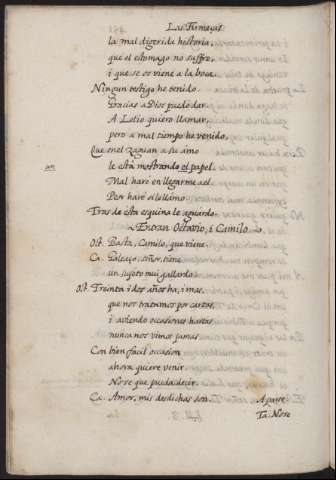 Las Firmezas
la mal digerida historia,
que el estomago no suffre,
i que se os viene a la boca.
Ningun testigo he tenido.
Gracias a Dios puedo dar.
A Lelio quiero llamar,
pero a mal tiempo he venido,
Que en el zaguan a su amo
le està mostrando el papel.
Mal harè en llegarme a el
Peor harè si le llamo
Tras de esta esquina le aguardo.
Entran Octavio, i Camilo
Ot. Basta, Camilo, que viene
Ca. Galeaço, señor, tiene
un sujeto mui gallardo
Ot. Treinta i dos años ha, i mas,
que nos tratamos por cartas,
i aviendo occasiones hartas
nunca nos vimos jamas
Con tan facil occasion
ahora quiere venir
No se que pueda decir.
Ca. Amor, mis desdichas son. Aparte.
Ta. No se